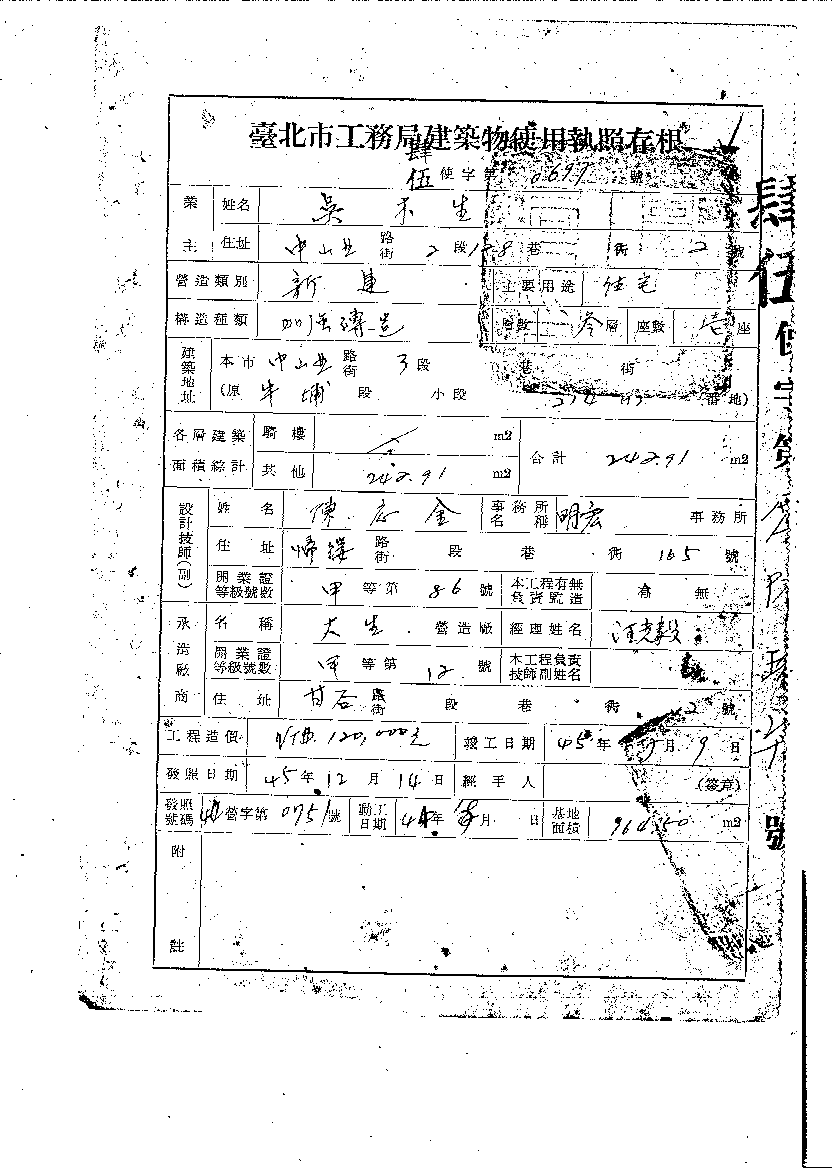 臺北市工務局建築物使用執照存根
肆伍 使字第 0697 號
業主 姓名 吳 生
住址 中山北 路街 2 段 128 巷 街 2 號
營造類別 新建 主要用途 住宅
構造種類 加强磚造 層數 叁 層 座數 壱 座
建築地址 本市 中山北 路街 3 段 巷 街
(原 牛埔 段 小段 番地)
各層建築面積綜計 騎樓 m2
其他 242.91 m2 合計 242.91 m2
設計技師(副) 姓名 陳志金 事務所名稱 明宏 事務所
住址 歸綏 路街 段 巷 街 165 號
開業證等級號數 甲 等第 86 號 本工程有無負責監造 有 無
承造廠商 名稱 大生 營造廠 經理姓名
開業證等級號數 甲 等第 12 號 本工程負責技師副姓名
住址 甘谷 路街 段 巷 街 2 號
工程造價 NT$ 120,000元 竣工日期 45 年 月 9 日
發照日期 45 年 12 月 14 日 經手人 (簽章)
發照號碼 44 營字第 0751 號 動工日期 44 年 月 日 基地面積 m2
附註
肆伍使字第 號